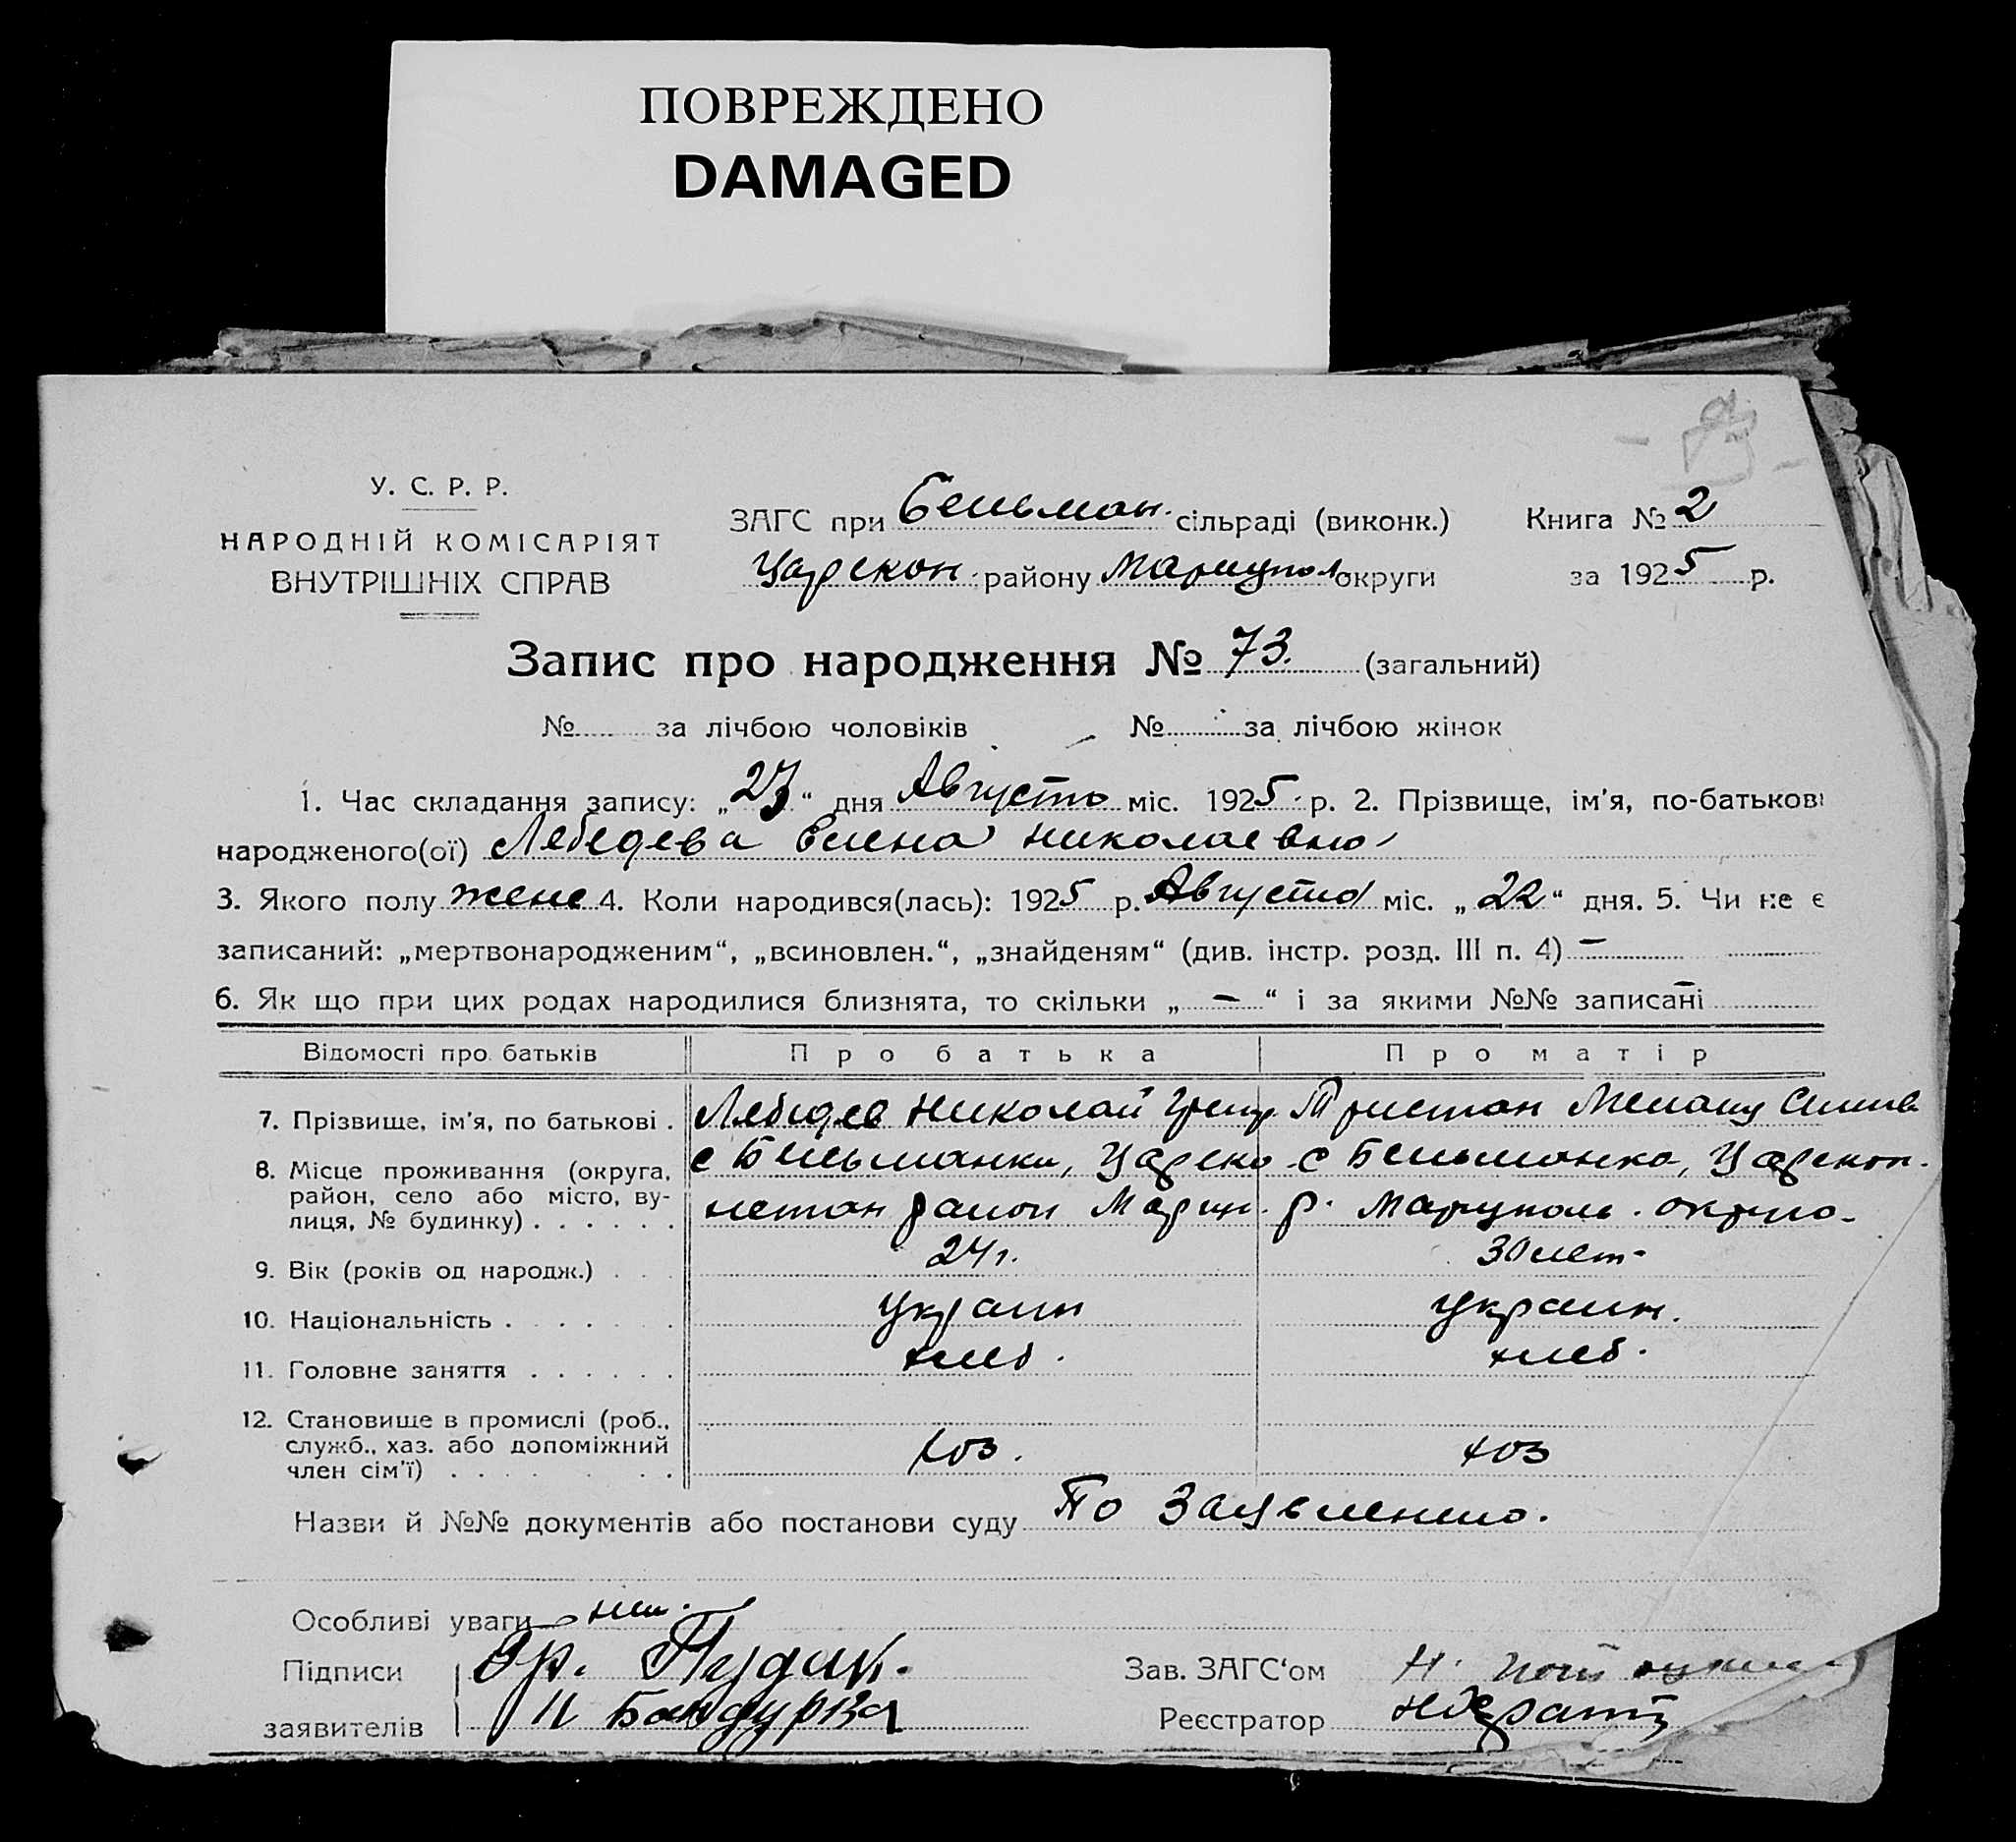 ПОВРЕЖДЕНО
DAMAGED
У. С. Р. Р.
НАРОДНІЙ КОМІСАРІЯТ
ВНУТРІШНІХ СПРАВ
ЗАГС при Бельман. сільраді (виконк.) Книга № 2
Царекон. району Мариупол округи за 1925 р.
Запис про народження № 73. (загальний)
№ за лічбою чоловіків № за лічбою жінок
1. Час складання запису: „27“ дня Августа міс. 1925 р. 2. Прізвище, ім'я, по-батькові
народженого(ої) Лебедева Елена Николаевна
3. Якого полу женс 4. Коли народився(лась): 1925 р. Августа міс. „22“ дня. 5. Чи не є
записаний: „мертвонародженим“, „всиновлен.“, „знайденям“ (див. інстр. розд. III п. 4) –
6. Як що при цих родах народилися близнята, то скільки „ – “ і за якими №№ записані –
Відомості про батьків Про батька Про матір
7. Прізвище, ім'я, по батькові . Лебедев Николай Григ. Тристан
8. Місце проживання (округа, с Бельманка, Цареко с Бельманка, Царекон.
район, село або місто, ву-
лиця, № будинку) . . . . . . нстан район Мариу. р. Мариуполь. округа.
9. Вік (років од народж.) . . . 24 г. 30 лет
10. Національність . . . . . . . Украин Украин.
11. Головне заняття . . . . . . хлеб. хлеб.
12. Становище в промислі (роб.,
служб., хаз. або допоміжний
член сім'ї) . . . . . . . . хоз. хоз
Назви й №№ документів або постанови суду По Заявлению.
Особливі уваги
Підписи Гр. Пудак.
заявителів И Бандурка
Зав. ЗАГС'ом Н.
Реєстратор